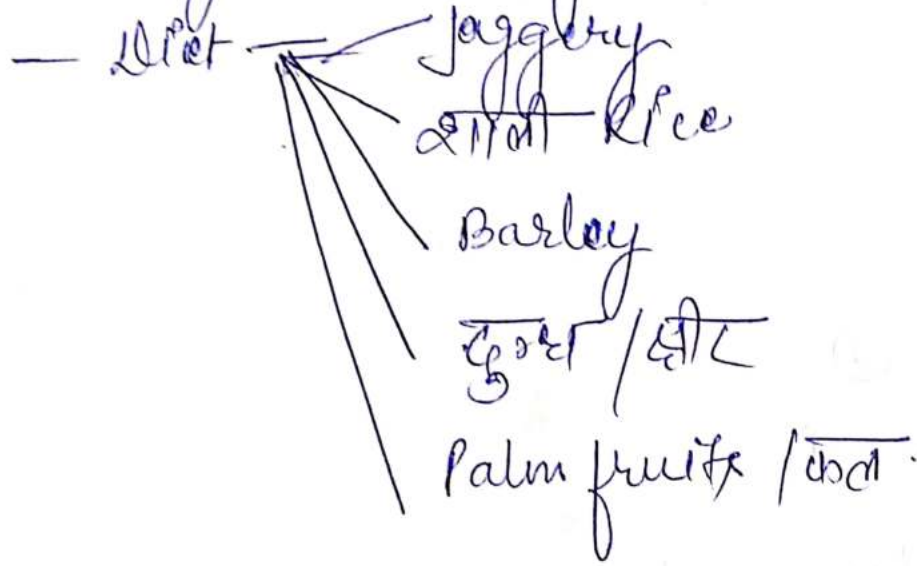 — Diet — Jagglery
शाली Rice
Barley
दुग्ध / क्षीर
Palm fruits / फल.